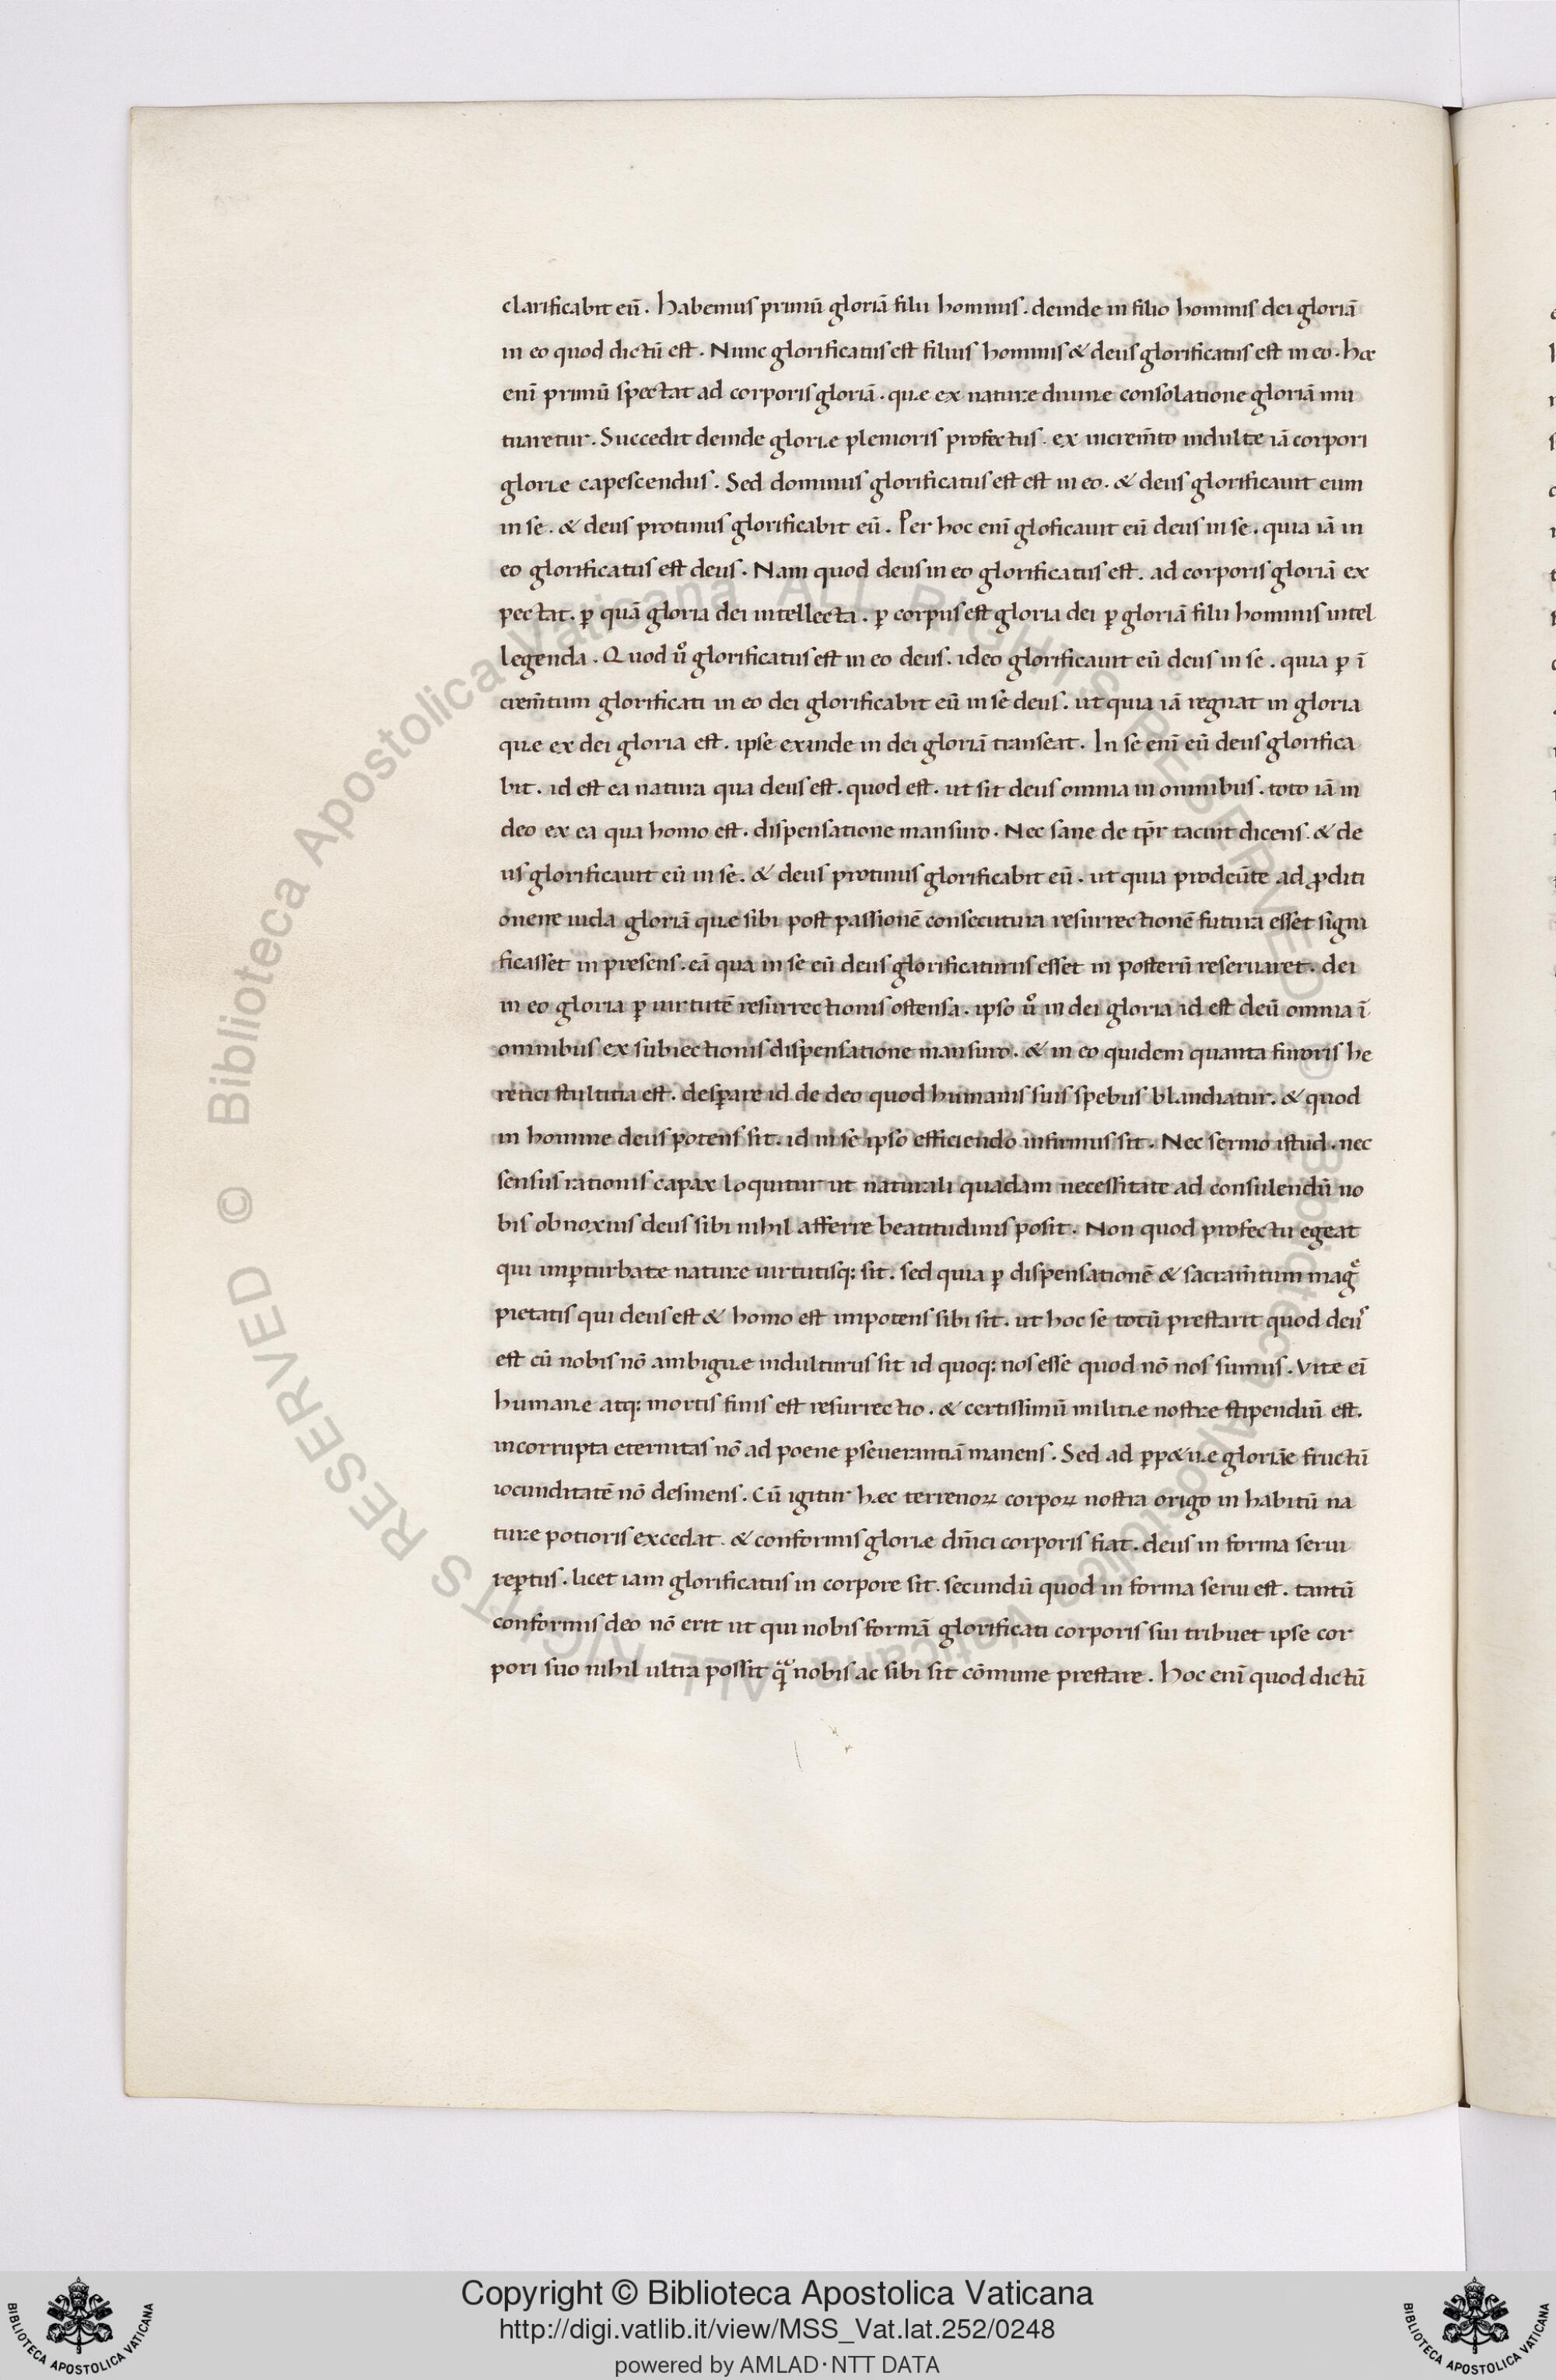 clarificabit eū. Habemus primū gloriā filii hominis. deinde in filio hominis dei gloriā
in eo quod dictū est. Nunc glorificatus est filius hominis & deus glorificatus est in eo. hoc
enī primū spectat ad corporis gloriā. quæ ex naturæ diuinæ consolatione gloriā mu
tuaretur. Succedit deinde gloriæ plenioris profectus. ex increm̄to indultæ iā corpori
gloriæ capescendus. Sed dominus glorificatus est est in eo. & deus glorificauit eum
in se. & deus protinus glorificabit eū. Per hoc enī gloficauit eū deus in se. quia iā in
eo glorificatus est deus. Nam quod deus in eo glorificatus est. ad corporis gloriā ex
pectat. ꝑ quā gloria dei intellecta. ꝑ corpus est gloria dei ꝑ gloriā filii hominis intel
legenda. Quod uͦ glorificatus est in eo deus. ideo glorificauit eū deus in se. quia ꝑ ī
crem̄tum glorificati in eo dei glorificabit eū in se deus. ut quia iā regnat in gloria
quæ ex dei gloria est. ipse exinde in dei gloriā transeat. In se enī eū deus glorifica
bit. id est ea natura qua deus est. quod est. ut sit deus omnia in omnibus. toto iā in
deo ex ea qua homo est. dispensatione mansuro. Nec sane de tp̄r tacuit dicens. & de
us glorificauit eū in se. & deus protinus glorificabit eū. ut quia prodeūte ad ꝓditi
onene iuda gloriā quæ sibi post passionē consecutura resurrectionē futura esset signi
ficasset in presens. eā qua in se eū deus glorificaturus esset in posterū reseruaret. dei
in eo gloria ꝑ uirtutē resurrectionis ostensa. ipso uͦ in dei gloria id est deū omnia ī
omnibus ex subiectionis dispensatione mansuro. & in eo quidem quanta furoris he
retici stultitia est. desꝑare id de deo quod humanis suis spebus blandiatur. & quod
in homine deus potens sit. id in se ipso efficiendo infirmus sit. Nec sermo istud. nec
sensus rationis capax loquitur ut naturali quadam necessitate ad consulendū no
bis obnoxius deus sibi nihil afferre beatitudinis posit. Non quod profectu egeat
qui imꝑturbatæ naturæ uirtutisq: sit. sed quia ꝑ dispensationē & sacram̄tum mag̊
pietatis qui deus est & homo est impotens sibi sit. ut hoc se totū prestarit quod deus
est cū nobis nō ambiguæ indulturus sit id quoq: nos esse quod nō nos sumus. Vite eī
humanæ atq: mortis finis est resurrectio. & certissimū militiæ nostræ stipendiū est.
incorrupta eternitas nō ad poene ꝑseuerantiā manens. Sed ad ꝑp&uæ gloriæ fructū
iocunditatē nō desinens. Cū igitur hæc terrenoꝝ corpoꝝ nostra origo in habitū na
turæ potioris excedat. & conformis gloriæ dn̄ici corporis fiat. deus in forma serui
reꝑtus. licet iam glorificatus in corpore sit. secundū quod in forma serui est. tantū
conformis deo nō erit ut qui nobis formā glorificati corporis sui tribuet ipse cor
pori suo nihil ultra possit qͣ̄ nobis ac sibi sit cōmune prestare. Hoc enī quod dictū
© Biblioteca Apostolica Vaticana ALL RIGHTS RESERVED © Biblioteca Apostolica Vaticana ALL RIGHTS RESERVED
Copyright © Biblioteca Apostolica Vaticana
http://digi.vatlib.it/view/MSS_Vat.lat.252/0248
powered by AMLAD·NTT DATA
BIBLIOTECA APOSTOLICA VATICANA
BIBLIOTECA APOSTOLICA VATICANA